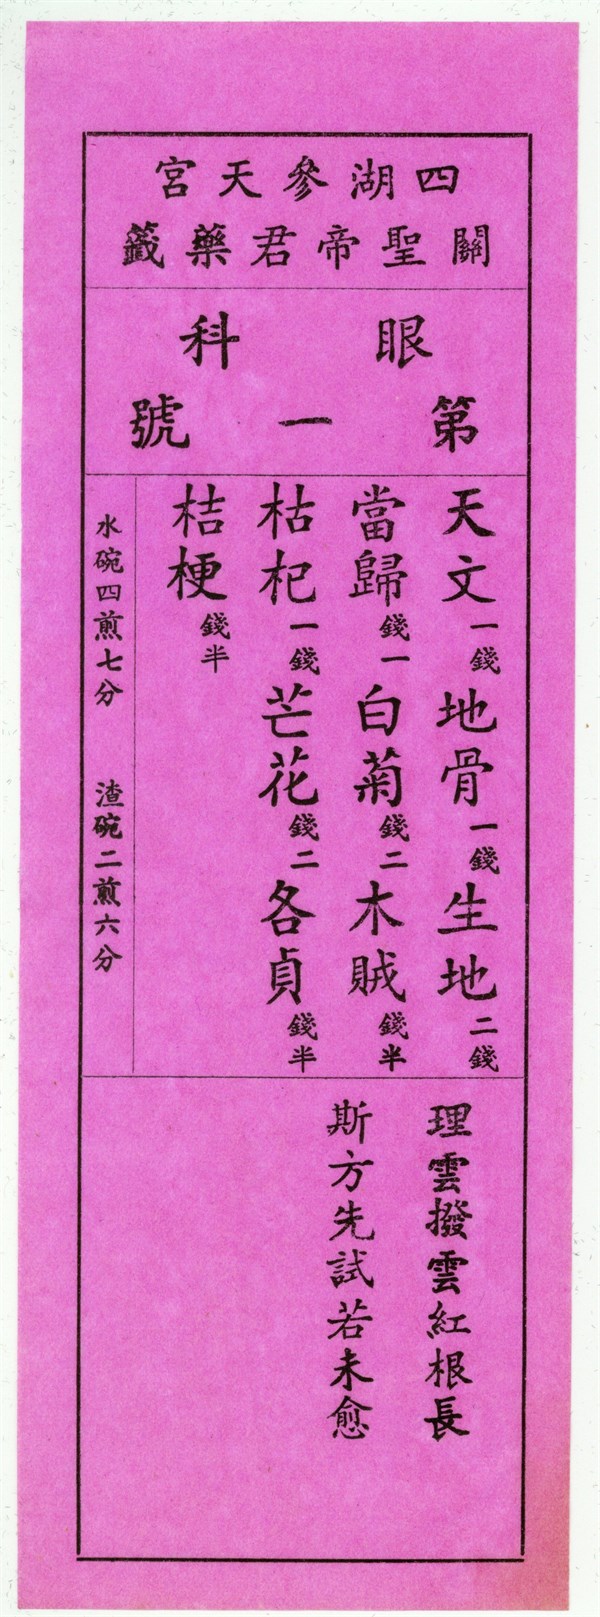 四湖參天宮
關聖帝君藥籤
眼科
第一號
天文一錢 地骨一錢 生地二錢
當歸錢一 白菊錢二 木賊錢半
枯杞一錢 芒花錢二 各貞錢半
桔梗錢半
水碗四煎七分 渣碗二煎六分
理雲撥雲紅根長
斯方先試若未愈